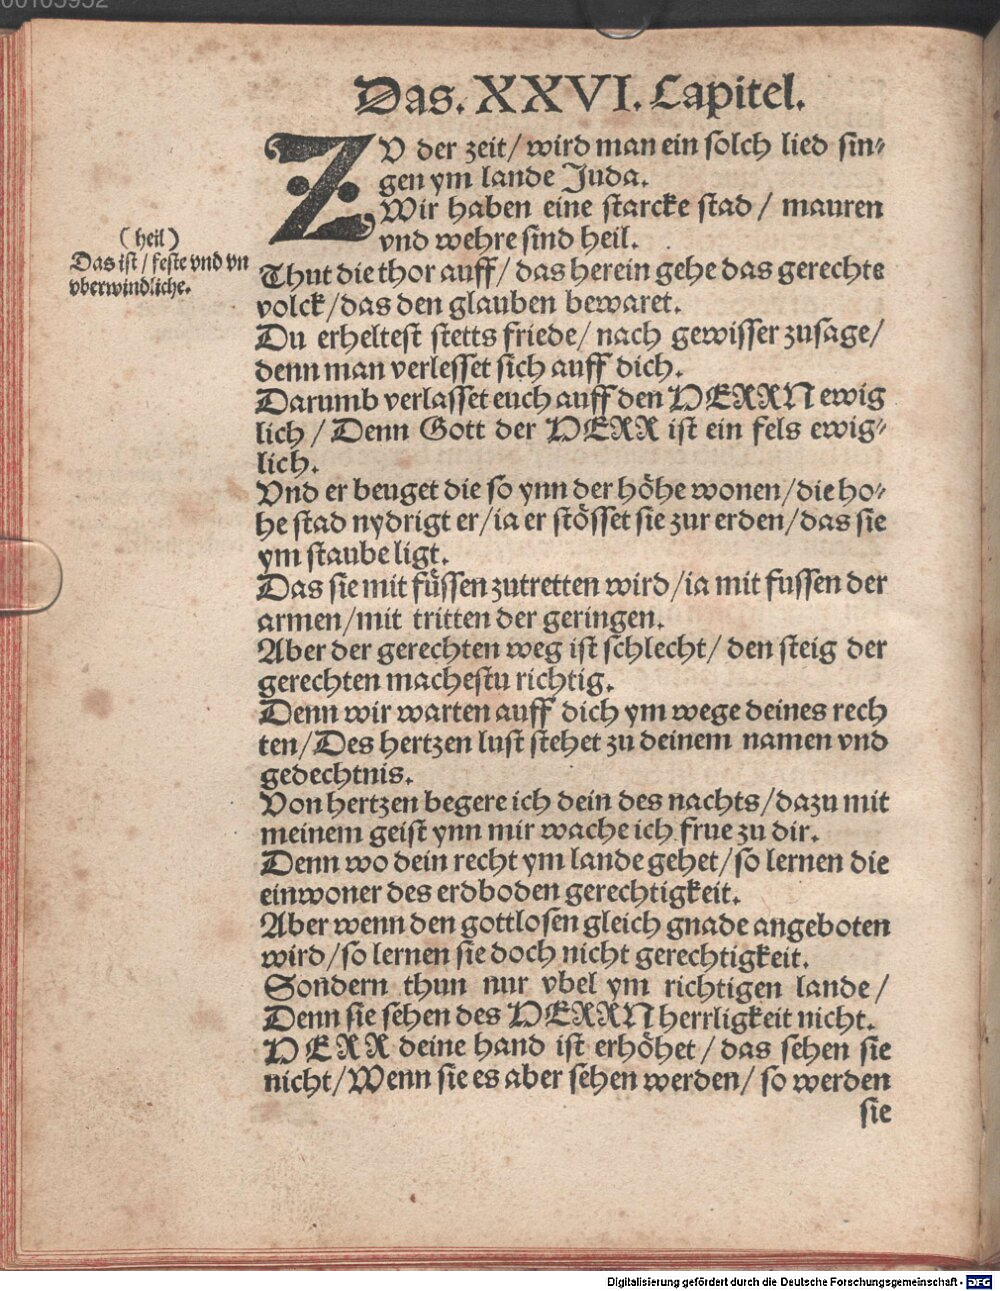 Das. XXVI. Capitel.
ZV der zeit/ wird man ein solch lied sin⸗
gen ym lande Juda.
Wir haben eine starcke stad / mauren
vnd wehre sind heil.
(heil)
Das ist/ feste vnd vn
vberwindliche.
Thut die thor auff/ das herein gehe das gerechte
volck/das den glauben bewaret.
Du erheltest stetts friede/ nach gewisser zusage/
denn man verlesset sich auff dich.
Darumb verlasset euch auff den HERRN ewig
lich / Denn Gott der HERR ist ein fels ewig⸗
lich.
Vnd er beuget die so ynn der höhe wonen/die ho⸗
he stad nydrigt er/ia er stösset sie zur erden/das sie
ym staube ligt.
Das sie mit füssen zutretten wird/ia mit fussen der
armen/mit tritten der geringen.
Aber der gerechten weg ist schlecht/ den steig der
gerechten machestu richtig.
Denn wir warten auff dich ym wege deines rech
ten/Des hertzen lust stehet zu deinem namen vnd
gedechtnis.
Von hertzen begere ich dein des nachts/dazu mit
meinem geist ynn mir wache ich frue zu dir.
Denn wo dein recht ym lande gehet/so lernen die
einwoner des erdboden gerechtigkeit.
Aber wenn den gottlosen gleich gnade angeboten
wird/so lernen sie doch nicht gerechtigkeit.
Sondern thun nur vbel ym richtigen lande/
Denn sie sehen des HERRN herrligkeit nicht.
HERR deine hand ist erhöhet/ das sehen sie
nicht/Wenn sie es aber sehen werden/ so werden
sie
Digitalisierung gefördert durch die Deutsche Forschungsgemeinschaft - DFG